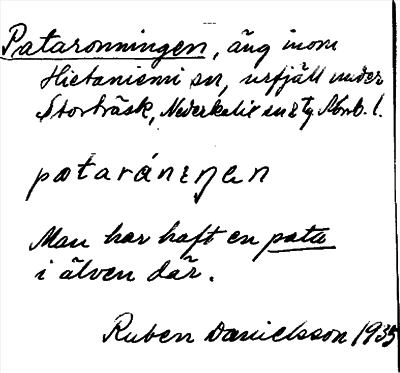 Pataronningen, äng inom
Hietaniemi sn, urfjäll under
Storträsk, Nederkalix sn & tg Nbtn. l.
patarónɪŋen
Man har haft en pata
i älven där.
Ruben Danielsson 1935